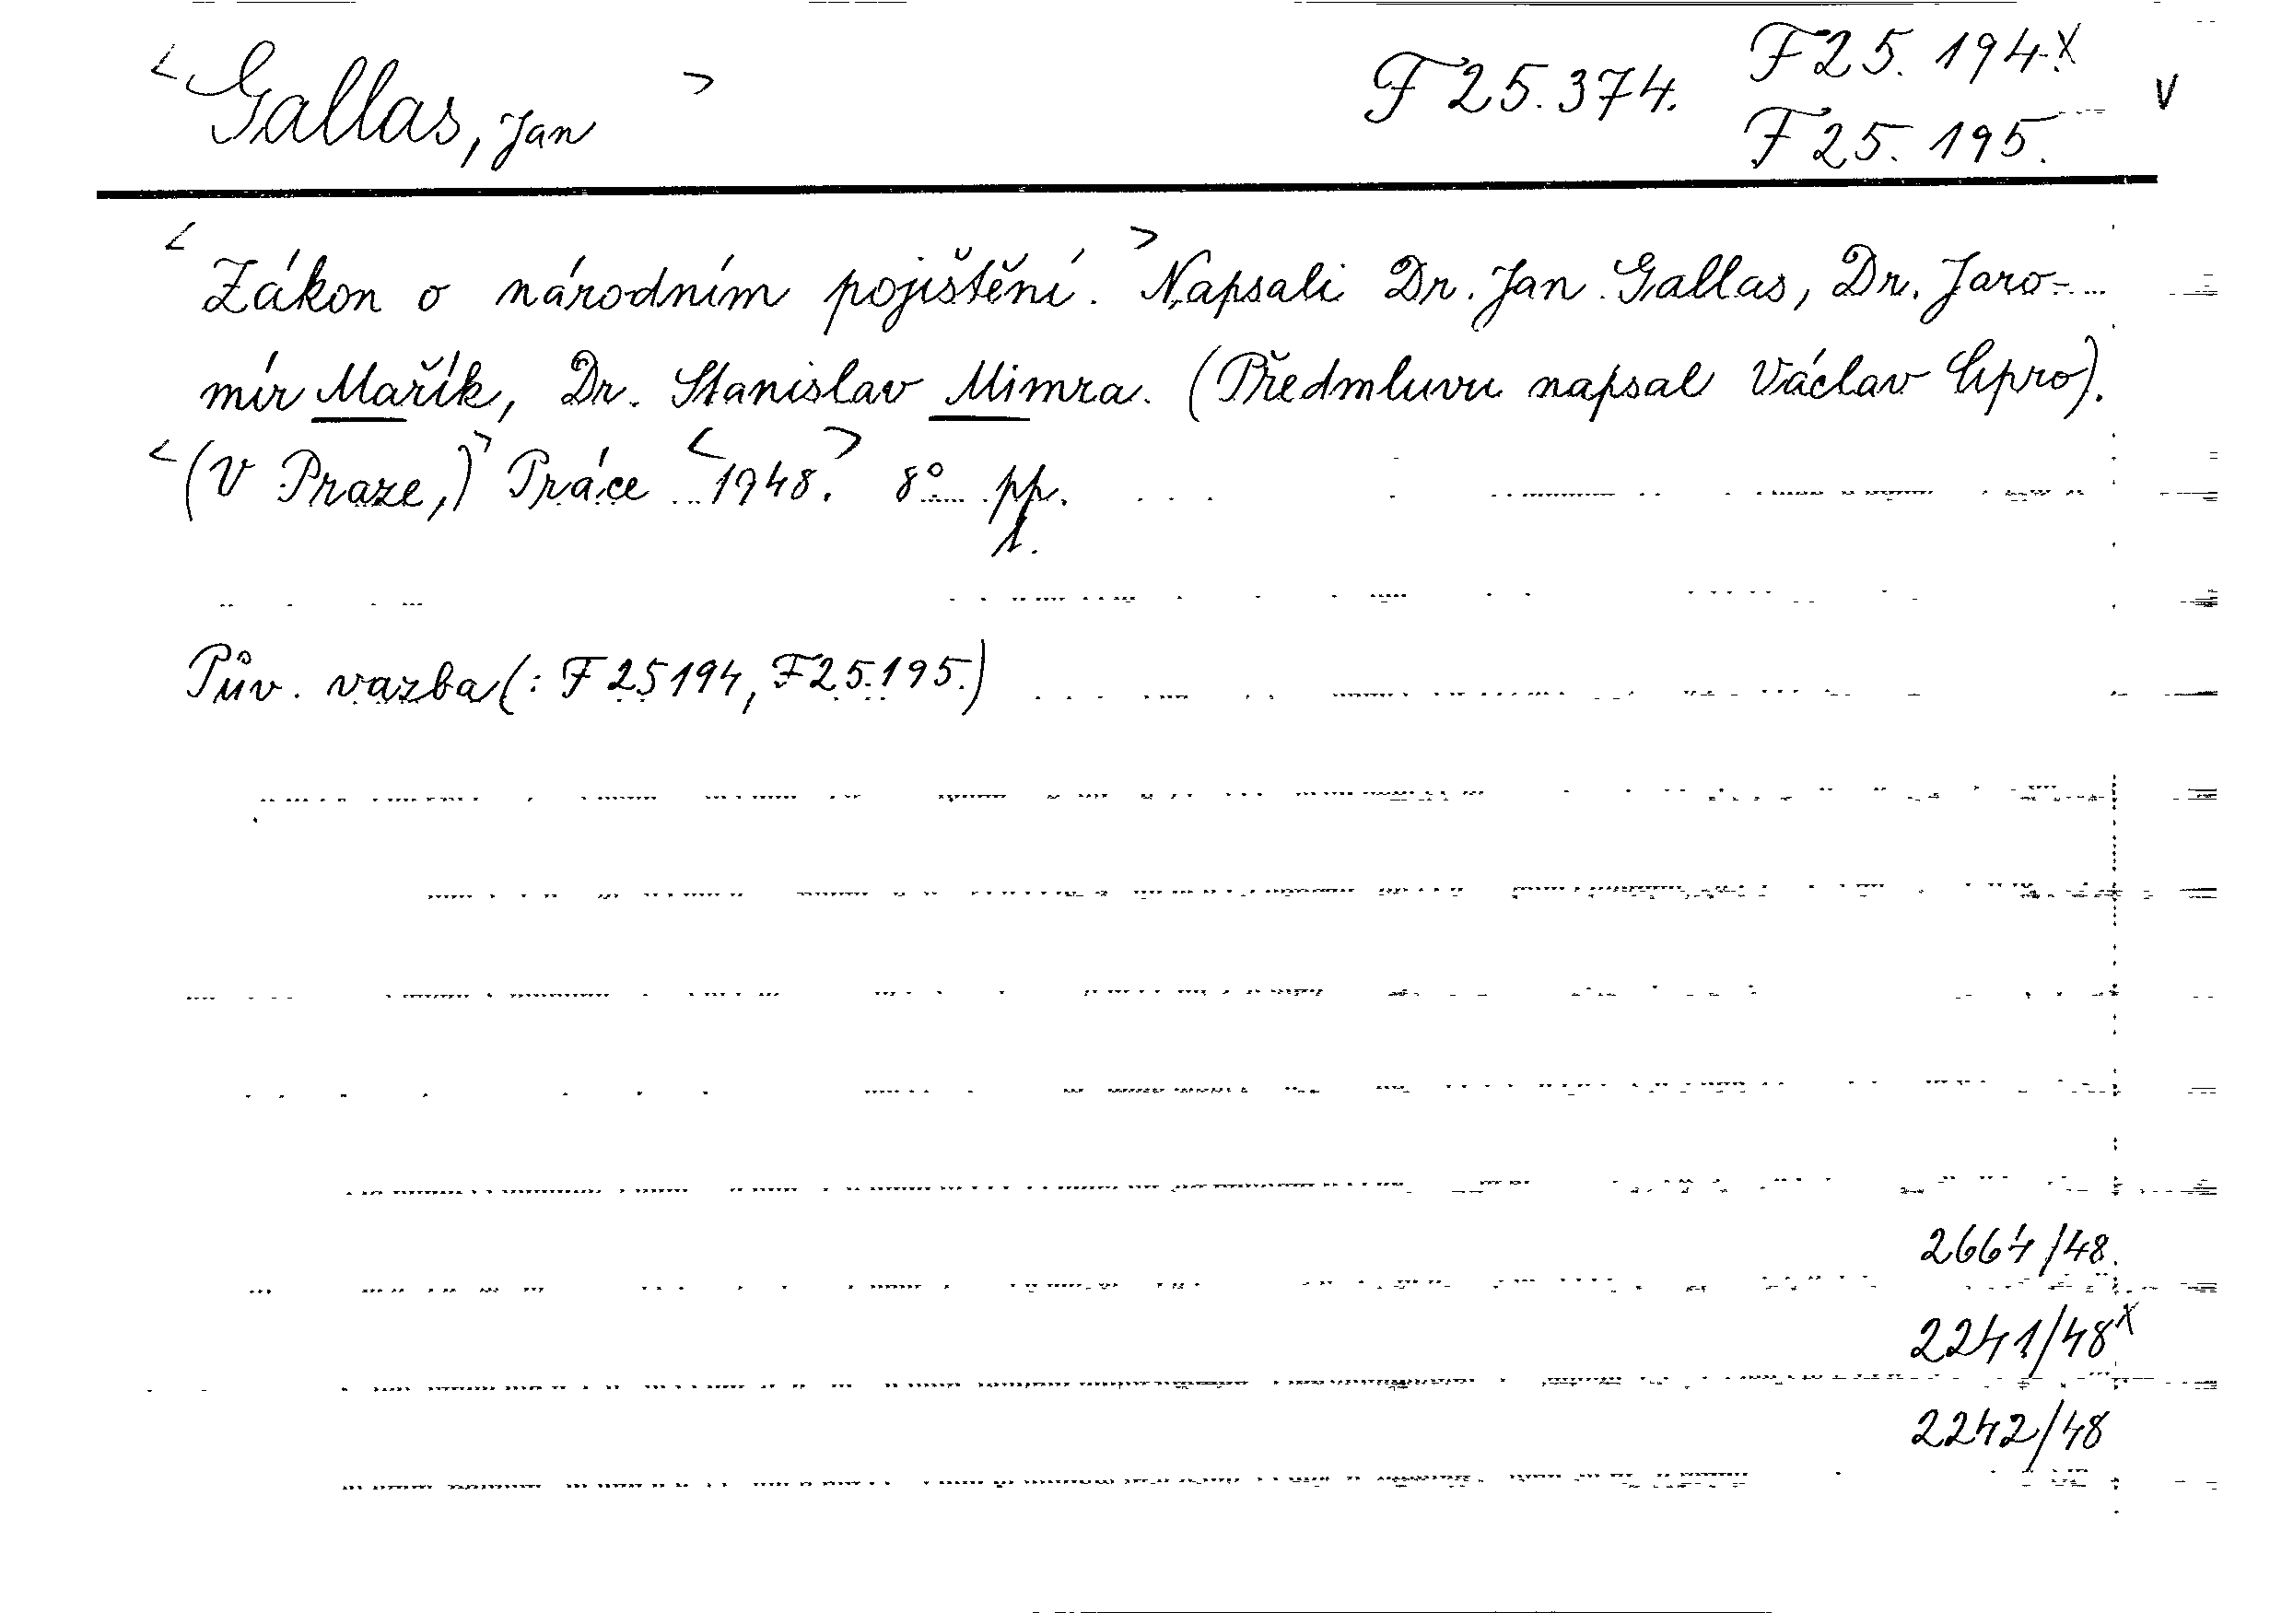 <Gallas, Jan> F 25.374. F 25.194.x v
F 25.195.
<Zákon o národním pojištění.> Napsali Dr. Jan Gallas, Dr. Jaro-
mír Mařík, Dr. Stanislav Mimra. (Předmluvu napsal Václav Cipro).
<(V Praze,)> Práce <1948.> 8° pp.
1.
Pův. vazba (: F 25194, F 25.195.)
2664/48.
2241/48x
2242/48